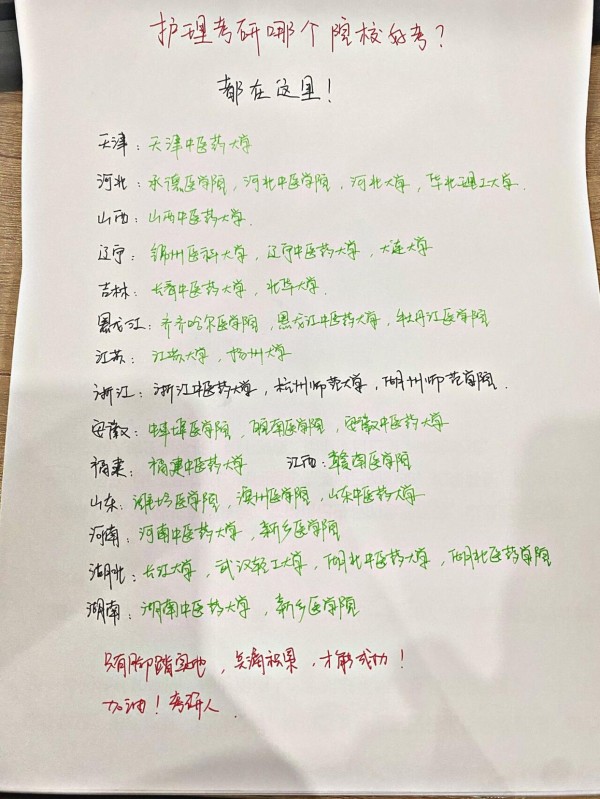 护理考研哪个院校好考?
都在这里!
天津:天津中医药大学
河北:承德医学院,河北中医学院,河北大学,华北理工大学.
山西:山西中医药大学.
辽宁:锦州医科大学,辽宁中医药大学,大连大学
吉林:长春中医药大学,北华大学.
黑龙江:齐齐哈尔医学院,黑龙江中医药大学,牡丹江医学院
江苏:江苏大学,扬州大学
浙江:浙江中医药大学,杭州师范大学,湖州师范学院.
安徽:蚌埠医学院,皖南医学院,安徽中医药大学
福建:福建中医药大学 江西:赣南医学院
山东:潍坊医学院,滨州医学院,山东中医药大学
河南:河南中医药大学,新乡医学院
湖北:长江大学,武汉轻工大学,湖北中医药大学,湖北医药学院
湖南:湖南中医药大学,新乡医学院
只有脚踏实地,点滴积累,才能成功!
加油!考研人.